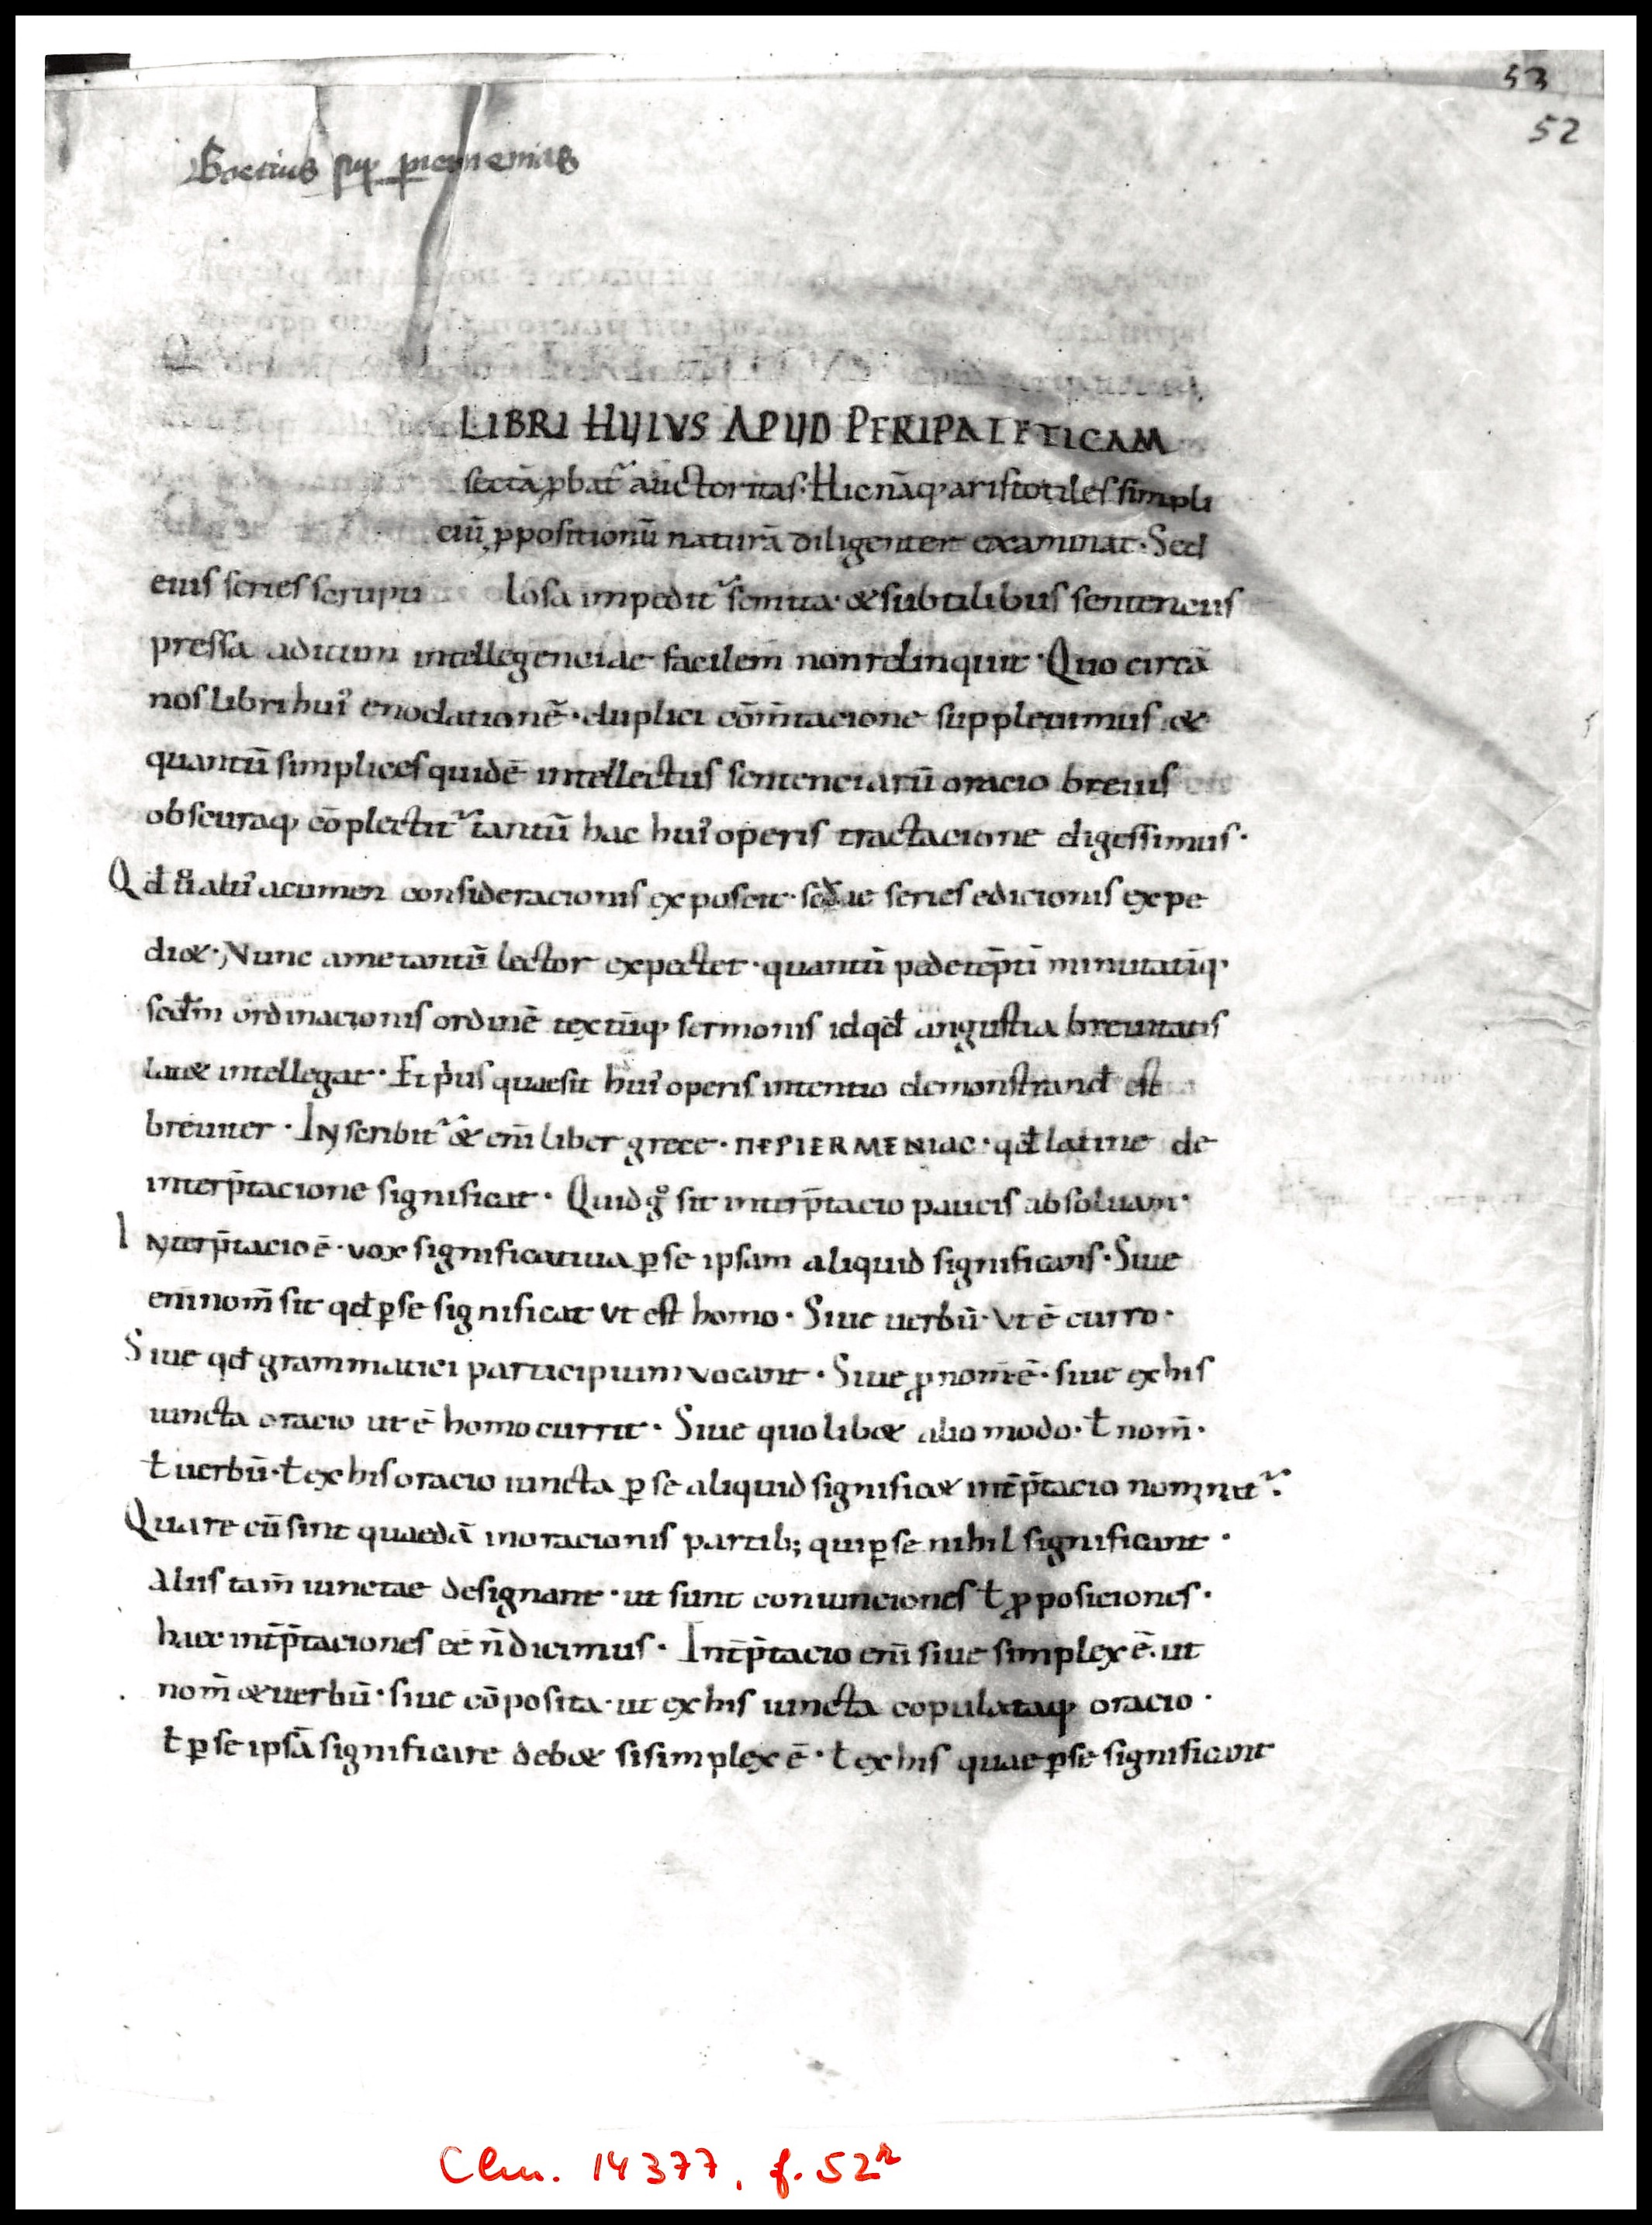 53
52
Boetius sup periermenias
LIBRI HUIVS APUD PERIPATETICAM
sectā ꝓbat᷑ auctoritas· Hic nāq; aristotiles simpli
ciū ꝓpositionū naturā diligenter examinat· Sed
eius series scrupu losa impedit᷑ semita· & subtilibus sentenciis
pressa aditum intellegenciae facilem̄ non relinquit· Quo circā
nos libri hui᾽ enodationē· duplici cōm̄tacione suppleuimus· &
quantū simplices quidē intellectus sentenciarū oracio breuis
obscuraq; cōplectit᷑ tantū hac hui᾽ operis tractacione digessimus·
Qđ ů alti᾽ acumen consideracionis exposcit· scđae series edicionis expe
di&· Nunc a me tantū lector expectet· quantū pedetēpti minutatīq;
scđm ordinacionis ordinē textūq; sermonis id qđ angustia breuitatis
lat& intellegat·· Et p̄us quae sit hui᾽ operis intentio demonstranđ est
breuiter· INscribit᷑ & em̄ liber grece· ΠΕΡΙΕRΜΕΝΙΑC· qđ latine de
interp̄tacione significat· Quid gͦ sit interp̄tacio paucis absoluam·
INterp̄tacio ē· vox significatiua ꝑ se ipsam aliquid significans· Siue
em̄ nom̄ sit qđ ꝑ se significat vt est homo· Siue uerbū· Vt ē curro·
Siue qđ grammatici participium vocant· Siue ꝓnom̄ ē· siue ex his
iuncta oracio ut ē homo currit· Siue quolib& alio modo· ł nom̄·
ł uerbū· ł ex his oracio iuncta ꝑ se aliquid signific& int̄p̄tacio nominat᷑·
Quare cū sint quaedā in oracionis partib; qui ꝑ se nihil significant·
Aliis tam̄ iunctae designant· ut sunt coniunciones ł ꝓposiciones·
haec int̄p̄taciones eē n̄ dicimus· Int̄p̄tacio em̄ siue simplex ē· ut
nom̄ & uerbū· siue cōposita· ut ex his iuncta copulataq; oracio·
ł ꝑ se ipsā significare deb& si simplex ē· ł ex his quae ꝑ se significant
Clm. 14377, f. 52r